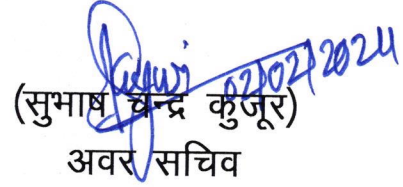 02/02/2024
(सुभाष चन्द्र कुजूर)
अवर सचिव